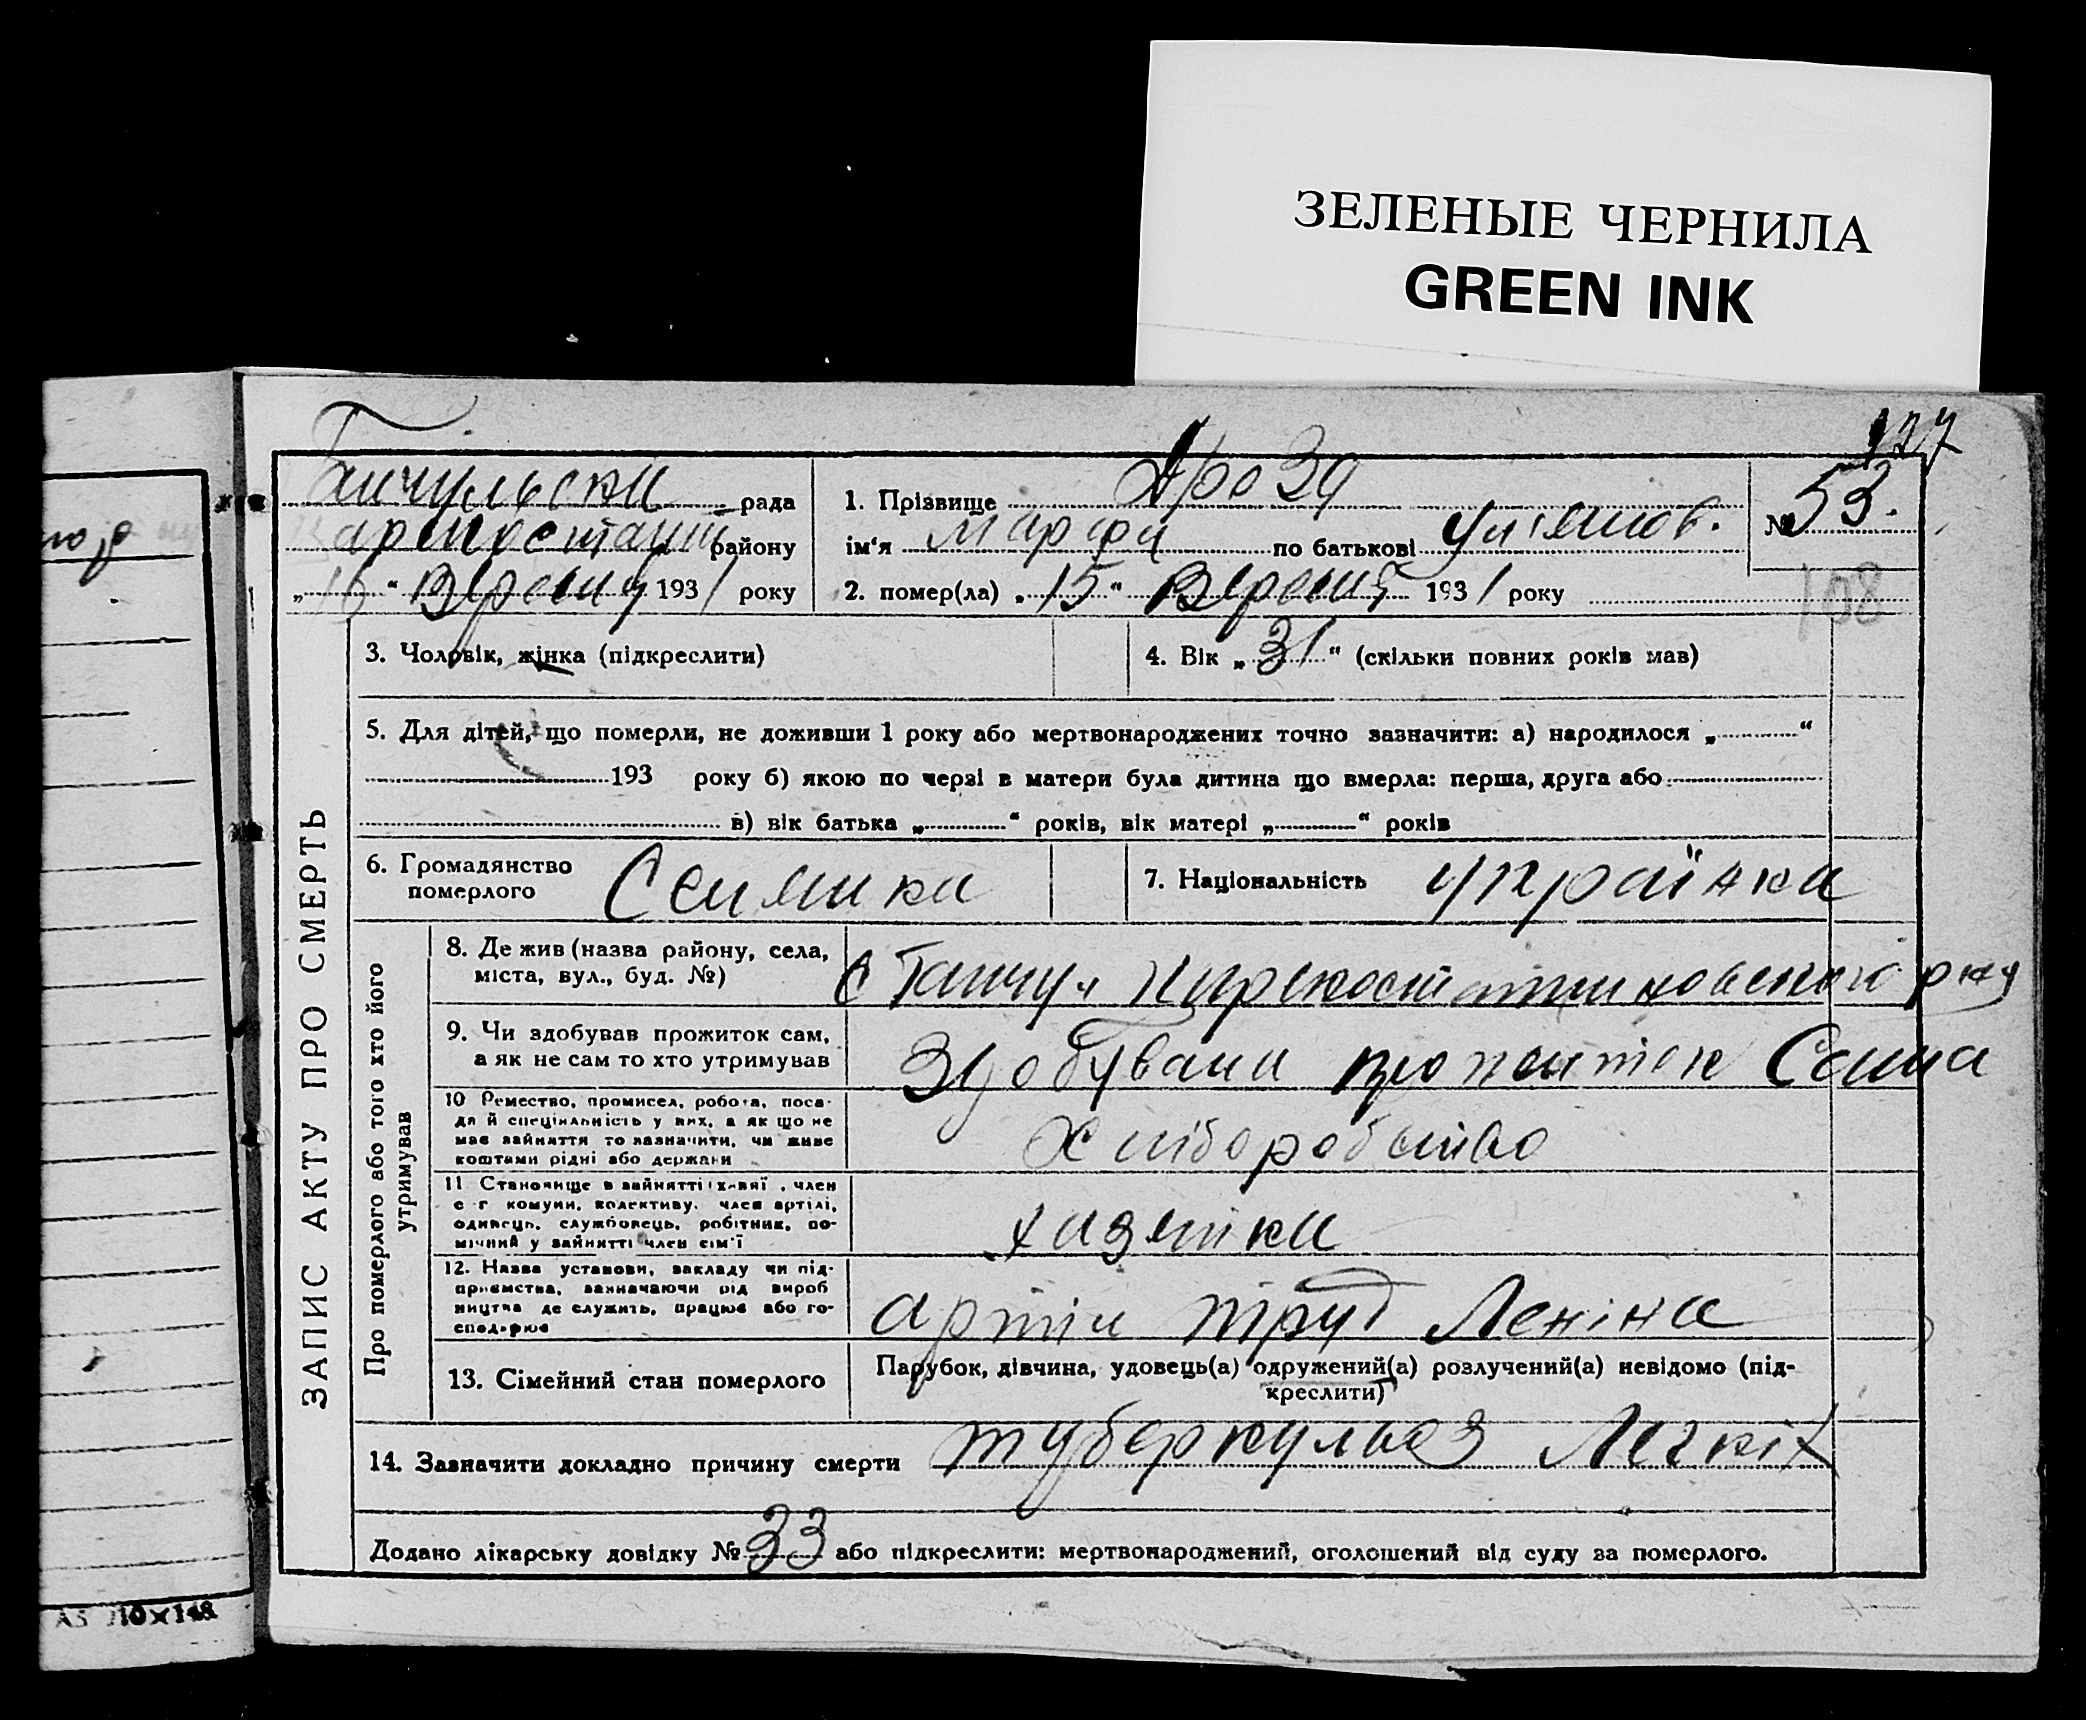 ЗЕЛЕНЫЕ ЧЕРНИЛА
GREEN INK
53.
108
рада
району
„16“ 1931 року
1. Прізвище Дрозд
ім'я Марфа по батькові
№ 53.
2. помер(ла) „15“ 1931 року
3. Чоловік, жінка (підкреслити)
4. Вік „31“ (скільки повних років мав)
5. Для дітей, що померли, не доживши 1 року або мертвонароджених точно зазначити: а) народилося „ “
193 року б) якою по черзі в матери була дитина що вмерла: перша, друга або
в) вік батька „ “ років, вік матері „ “ років
6. Громадянство
померлого
7. Національність українка
ЗАПИС АКТУ ПРО СМЕРТЬ
Про померлого або того хто його
утримував
8. Де жив (назва району, села,
міста, вул., буд. №)
9. Чи здобував прожиток сам,
а як не сам то хто утримував
Здобувала прожиток Сама
10 Ремество, промисел, робота, поса-
да й спеціяльність у них, а як що не
має зайняття то зазначити, чи живе
коштами рідні або держави
Хліборобство
11 Становище в зайнятті (хазяї , член
с-г комуни, колективу, член артілі,
одинець, службовець, робітник, по-
мічний у зайнятті член сім'ї
хазяйка
12. Назва установи, закладу чи під-
приємства, зазначаючи рід вироб
ництва де служить, працює або го-
сподарює
артіл труд Леніна
13. Сімейний стан померлого
Парубок, дівчина, удовець(а) одружений(а) розлучений(а) невідомо (під-
креслити)
14. Зазначити докладно причину смерти туберкульоз Легкіх
Додано лікарську довідку № 33 або підкреслити: мертвонароджений, оголошений від суду за померлого.
А5 210×148